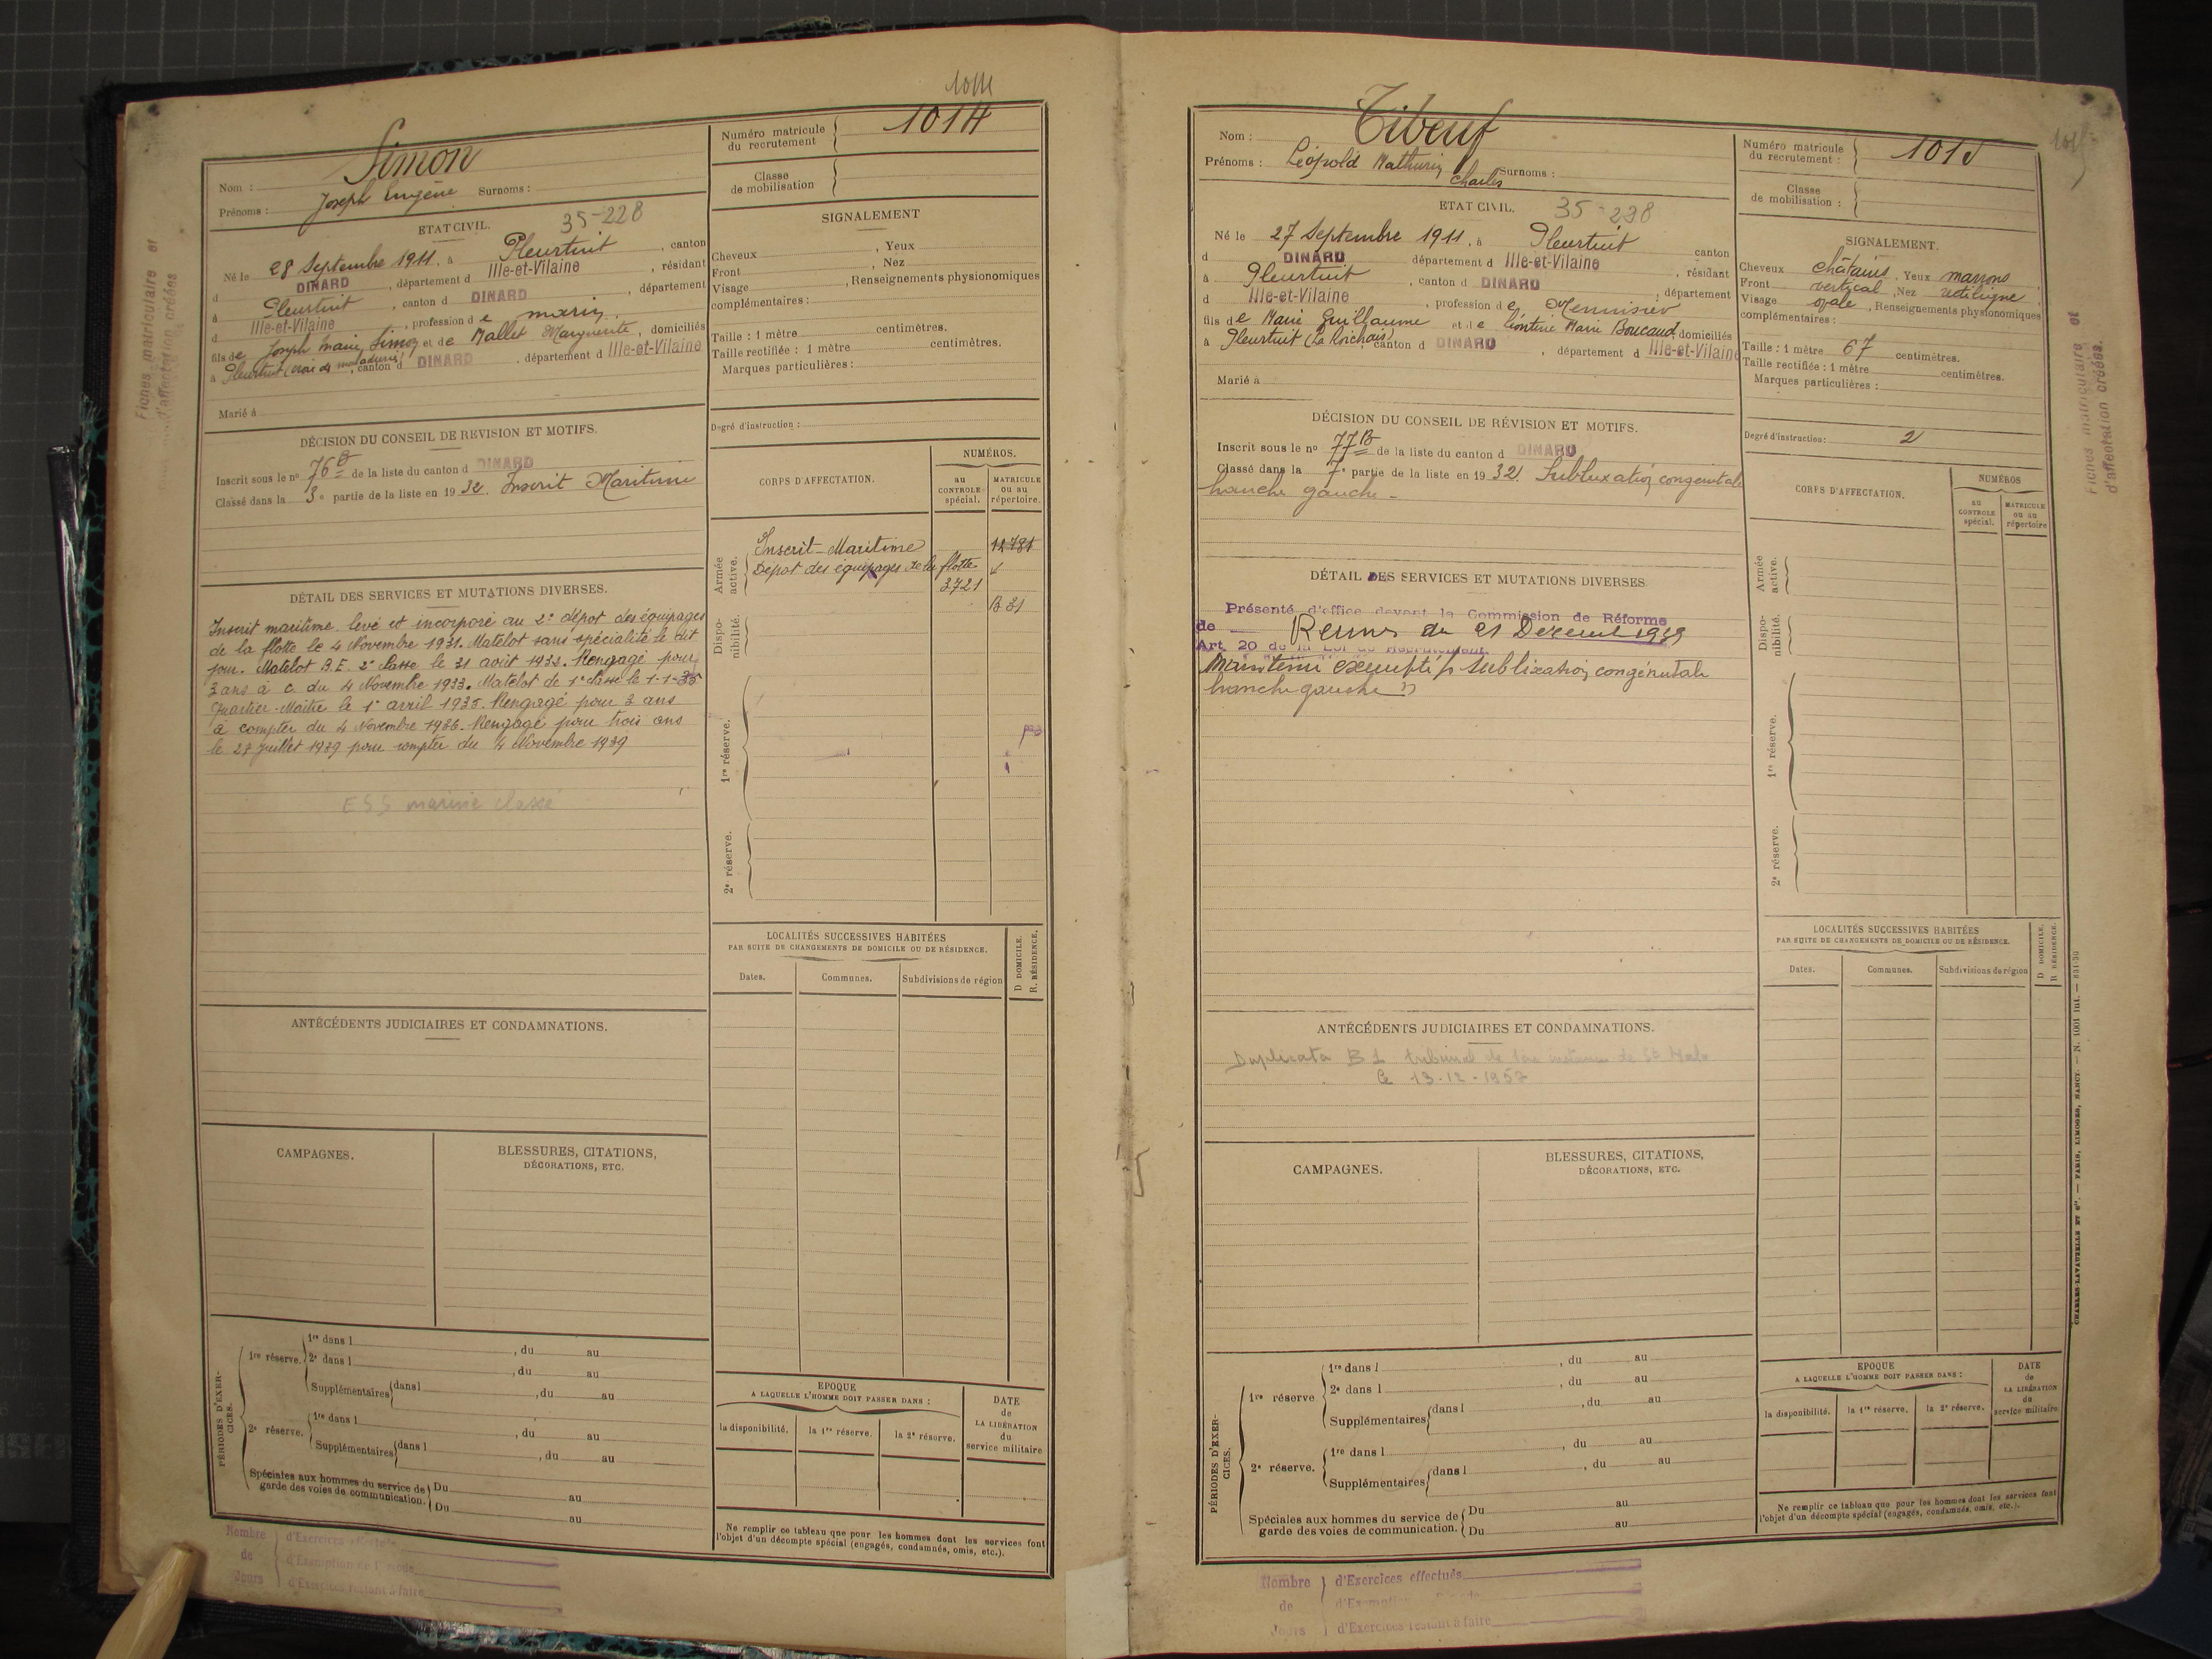 1014
Simon
Nom :
Prénoms : Joseph Eugène Surnoms :
Numéro matricule du recrutement 1014
Classe de mobilisation
ETAT CIVIL. 35-228
Né le 28 Septembre 1911, à Pleurtuit, canton
d DINARD, département d Ille-et-Vilaine, résidant
à Pleurtuit, canton d DINARD, département
d Ille-et-Vilaine, profession de marin,
fils de Joseph Marie Simon et de Mallet Marguerite, domiciliés
à Pleurtuit, canton d DINARD, département d Ille-et-Vilaine
Marié à
SIGNALEMENT
Cheveux , Yeux
Front , Nez
Visage , Renseignements physionomiques
complémentaires :
Taille : 1 mètre centimètres.
Taille rectifiée : 1 mètre centimètres.
Marques particulières :
Degré d'instruction :
DÉCISION DU CONSEIL DE REVISION ET MOTIFS.
Inscrit sous le no 76 B de la liste du canton d DINARD
Classé dans la 3e partie de la liste en 1932. Inscrit Maritime
CORPS D'AFFECTATION.
NUMÉROS.
au CONTROLE spécial.
MATRICULE ou au répertoire.
Armée active.
Inscrit-Maritime 12781
Dépot des équipages de la flotte
3721
B 31
Disponibilité.
1re réserve.
2e réserve.
DÉTAIL DES SERVICES ET MUTATIONS DIVERSES.
Inscrit maritime levé et incorporé au 2e dépot des équipages
de la flotte le 4 Novembre 1931. Matelot sans spécialité le dit
jour. Matelot B.E. 2e classe le 31 août 1932. Rengagé pour
3 ans à c. du 4 Novembre 1933. Matelot de 1e classe le 1-1-35
Quartier-Maitre le 1er avril 1935. Rengagé pour 3 ans
à compter du 4 Novembre 1936. Rengagé pour trois ans
le 27 Juillet 1939 pour compter du 4 Novembre 1939
ESS marine classé
LOCALITÉS SUCCESSIVES HABITÉES
PAR SUITE DE CHANGEMENTS DE DOMICILE OU DE RÉSIDENCE.
Dates.
Communes.
Subdivisions de région
D. DOMICILE.
R. RÉSIDENCE.
ANTÉCÉDENTS JUDICIAIRES ET CONDAMNATIONS.
CAMPAGNES.
BLESSURES, CITATIONS,
DÉCORATIONS, ETC.
PÉRIODES D'EXERCICES.
1re réserve. 1re dans l , du au
2e dans l , du au
Supplémentaires dans l , du au
2e réserve. 1re dans l , du au
Supplémentaires dans l , du au
Spéciales aux hommes du service de garde des voies de communication. Du au
Du au
EPOQUE
A LAQUELLE L'HOMME DOIT PASSER DANS :
la disponibilité.
la 1re réserve.
la 2e réserve.
DATE de LA LIBÉRATION du service militaire
Ne remplir ce tableau que pour les hommes dont les services font
l'objet d'un décompte spécial (engagés, condamnés, omis, etc.).
Nombre de Jours
d'Exercices effectués
d'Exemption de
d'Exercices restant à faire
Fiches matriculaire et
d'affectation créées
Tibeuf
Nom :
Prénoms : Léopold Mathurin Surnoms :
Charles
Numéro matricule du recrutement : 1015
Classe de mobilisation :
ETAT CIVIL. 35-228
Né le 27 Septembre 1911, à Pleurtuit canton
d DINARD département d Ille-et-Vilaine, résidant
à Pleurtuit, canton d DINARD, département
d Ille-et-Vilaine, profession de Menuisier
fils de Marie Guillaume et de Léontine Marie Boucaud, domiciliés
à Pleurtuit, canton d DINARD, département d Ille-et-Vilaine
Marié à
SIGNALEMENT.
Cheveux châtains, Yeux marrons
Front vertical, Nez rectiligne
Visage ovale, Renseignements physionomiques
complémentaires :
Taille : 1 mètre 67 centimètres.
Taille rectifiée : 1 mètre centimètres.
Marques particulières :
Degré d'instruction : 2
DÉCISION DU CONSEIL DE RÉVISION ET MOTIFS.
Inscrit sous le no 77 B de la liste du canton d DINARD
Classé dans la 7e partie de la liste en 1932. Subluxation congénitale
hanche gauche -
CORPS D'AFFECTATION.
NUMÉROS
au CONTROLE spécial.
MATRICULE ou au répertoire
Armée active.
Disponibilité.
1re réserve.
2e réserve.
DÉTAIL DES SERVICES ET MUTATIONS DIVERSES
Présenté d'office devant la Commission de Réforme
de Rennes du 21 Décembre 1939
Art. 20 de la Loi de Recrutement.
Maintenu exempté p. sublixation congénitale
hanche gauche "
LOCALITÉS SUCCESSIVES HABITÉES
PAR SUITE DE CHANGEMENTS DE DOMICILE OU DE RÉSIDENCE.
Dates.
Communes.
Subdivisions de région
D DOMICILE.
R RÉSIDENCE.
ANTÉCÉDENTS JUDICIAIRES ET CONDAMNATIONS.
Duplicata B 1 tribunal de 1ère instance de St Malo
le 13-12-1957
CAMPAGNES.
BLESSURES, CITATIONS,
DÉCORATIONS, ETC.
PÉRIODES D'EXERCICES.
1re réserve 1re dans l , du au
2e dans l , du au
Supplémentaires dans l , du au
2e réserve. 1re dans l , du au
Supplémentaires dans l , du au
Spéciales aux hommes du service de garde des voies de communication. Du au
Du au
EPOQUE
A LAQUELLE L'HOMME DOIT PASSER DANS :
la disponibilité.
la 1re réserve.
la 2e réserve.
DATE de LA LIBÉRATION du service militaire
Ne remplir ce tableau que pour les hommes dont les services font
l'objet d'un décompte spécial (engagés, condamnés, omis, etc.).
Nombre de Jours
d'Exercices effectués
d'Exemption
d'Exercices restant à faire
Fiches matriculaire et
d'affectation créées.
CHARLES-LAVAUZELLE ET Cie. — PARIS, LIMOGES, NANCY. — N. 1001 int. — 831-30